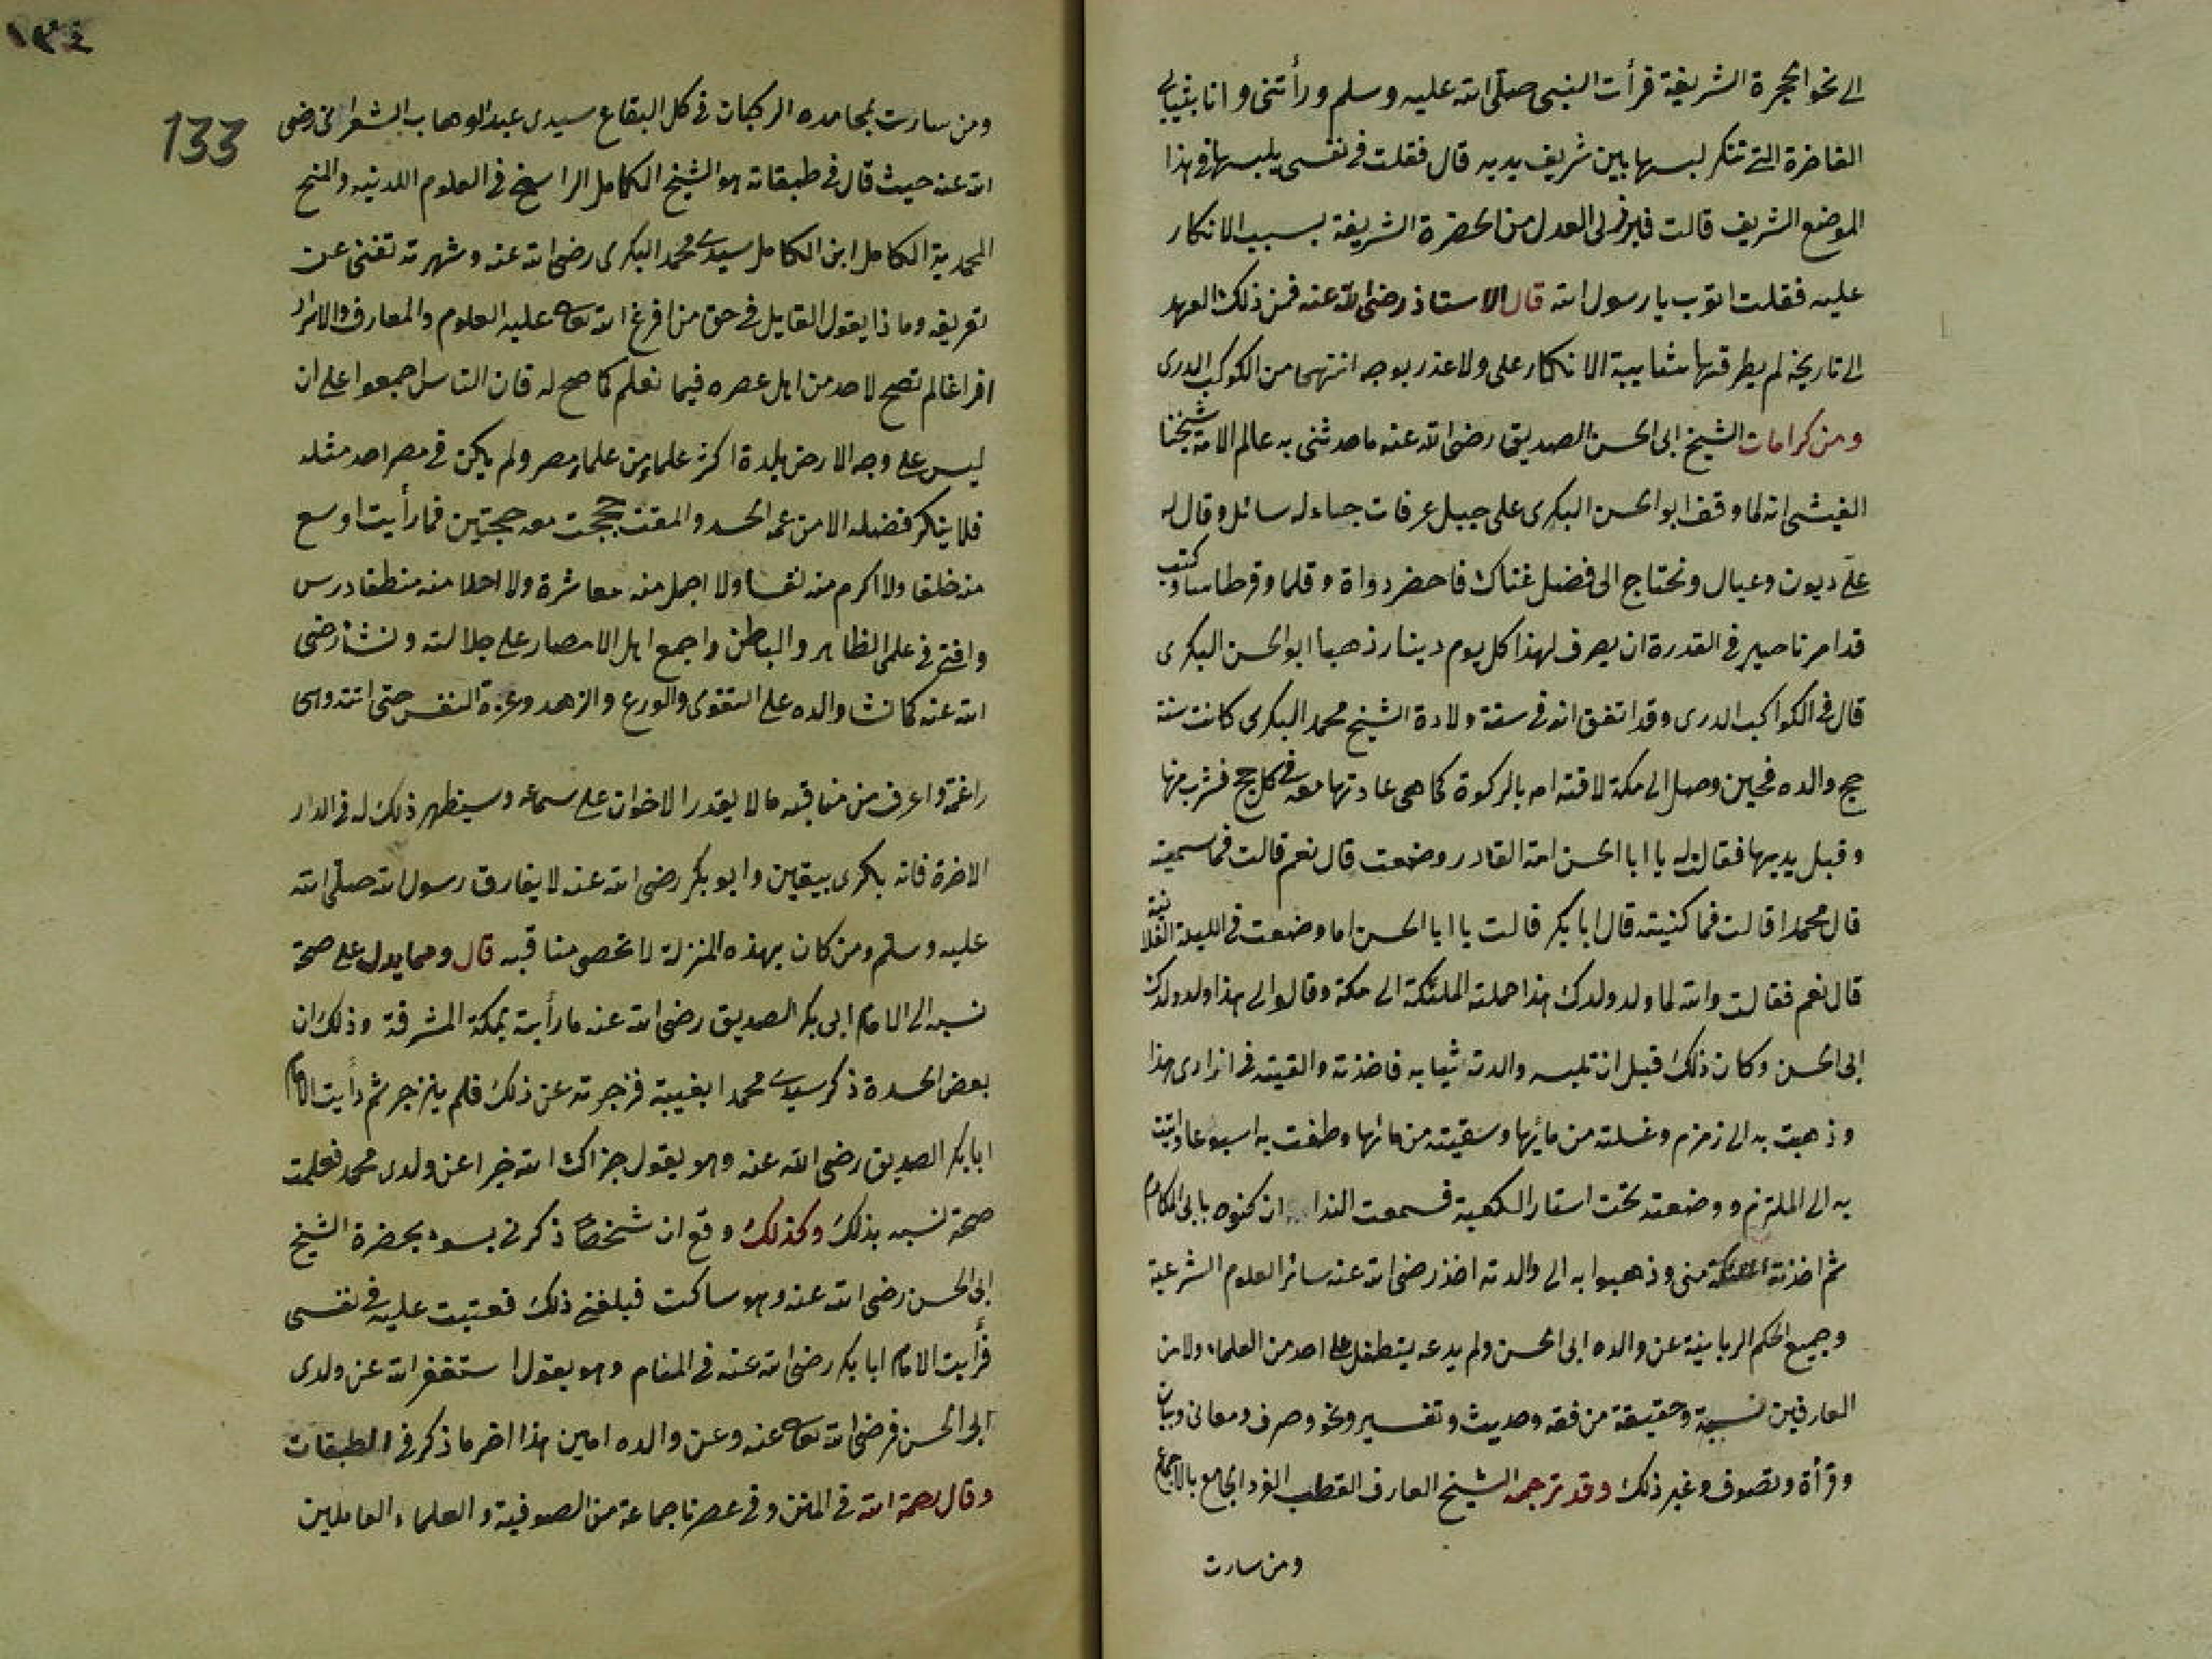 الى نحو الحجرة الشريفة فرأت النبى صلى الله عليه وسلم ورأتنى وانا بثيابى
الفاخرة التى تنكر لبسها بين شريف يديه قال فقلت فى نفسى يلبسها فى هذا
الموضع الشريف قالت فبرز لى العدل من الحضرة الشريفة بسبب الانكار
عليه فقلت اتوب يا رسول الله قال الاستاذ رضى الله عنه فمن ذلك العهد
الى تاريخه لم يطرقها شايبة الانكار على ولا عذر بوجه انتهى من الكوكب الدرى
ومن كرامات الشيخ ابى الحسن الصديقى رضى الله عنه ما حدثنى به عالم الامة شيخنا
الفيشى انه لما وقف ابو الحسن البكرى على جبل عرفات جاء له سائل وقال له
على ديون وعيال ونحتاج الى فضل غناك فاحضر دواة وقلما وقرطاسا وكتب
قد امرنا صير فى القدرة ان يصرف لهذا كل يوم دينار ذهبا ابو الحسن البكرى
قال فى الكواكب الدرى وقد اتفق انه فى سنة ولادة الشيخ محمد البكرى كانت سنة
حج والده فحين وصل الى مكة لاقته ام بالركوة كما هى عادتها معه فى كل حج فشرب منها
وقبل يديها فقالت له يا ابا الحسن امة القادر وضعت قال نعم قالت فما سميته
قال محمدا قالت فما كنيته قال ابا بكر قالت يا ابا الحسن اما وضعت فى الليلة الفلانية
قال نعم فقالت والله لما ولد ولدك هذا حملته الملئكة الى مكة وقالوا لى هذا ولد ولدك
ابى الحسن وكان ذلك قبل ان تلبسه والدته ثيابه فاخذته والقيته فى ازارى هذا
وذهبت به الى زمزم وغسلته من مائها وسقيته من مائها وطفت به اسبوعا واتيت
به الى الملتزم ووضعته تحت استار الكعبة فسمعت الندا ان كنوه بابى المكارم
ثم اخذته الملئكة منى وذهبوا به الى والدته اخذ رضى الله عنه سائر العلوم الشرعية
وجميع الحكم الربانية عن والده ابى الحسن ولم يدعه يتطفل على احد من العلماء ولا من
العارفين نسبة وحقيقة من فقه وحديث وتفسير ونحو وصرف ومعانى وبيان
وقرأة وتصوف وغير ذلك وقد ترجمه الشيخ العارف القطب الفرد الجامع بالاجماع
ومن سارت
١٣٤
133
ومن سارت بمحامده الركبان فى كل البقاع سيدى عبد الوهاب الشعرانى رضى
الله عنه حيث قال فى طبقاته هو الشيخ الكامل الراسخ فى العلوم اللدنية والمنح
المحمدية الكامل ابن الكامل سيدى محمد البكرى رضى الله عنه وشهرته تغنى عن
تعريفه وماذا يقول القايل فى حق من افرغ الله تعا عليه العلوم والمعارف والاسرار
افراغا لم تصح لاحد من اهل عصره فيما نعلم كما صح له فان الناس اجمعوا على ان
ليس على وجه الارض بلدة اكثر علماء من علماء مصر ولم يكن فى مصر احد مثله
فلا ينكر فضله الا من عمه الحسد والمقت حججت معه حجتين فما رأيت اوسع
منه خلقا ولا اكرم منه نفسا ولا اجمل منه معاشرة ولا احلا منه منطقا درس
وافتى فى علمى الظاهر والباطن واجمع اهل الامصار على جلالته ونشأ رضى
الله عنه كما نشا والده على التقوى والورع والزهد وعزة النفس حتى اتته وهى
راغمة واعرف من مناقبه ما لا يقدر الاخوان على سماعه وسيظهر ذلك له فى الدار
الاخرة فانه بكرى بيقين وابو بكر رضى الله عنه لا يفارق رسول الله صلى الله
عليه وسلم ومن كان بهذه المنزلة لا تحصى مناقبه قال ومما يدل على صحة
نسبه الى الامام ابى بكر الصديق رضى الله عنه ما رأيته بمكة المشرفة وذلك ان
بعض الحسدة ذكر سيدى محمدا بغيبة فزجرته عن ذلك فلم ينزجر ثم رأيت الامام
ابا بكر الصديق رضى الله عنه وهو يقول جزاك الله خيرا عن ولدى محمد فعلمت
صحة نسبه بذلك وكذلك وقع ان شخصا ذكرنى بسوء بحضرة الشيخ
ابى الحسن رضى الله عنه وهو ساكت فبلغنى ذلك فعتبت عليه فى نفسى
فرأيت الامام ابا بكر رضى الله عنه فى المنام وهو يقول استغفر الله عن ولدى
ابى الحسن فرضى الله تعا عنه وعن والده امين هذا اخر ما ذكر فى الطبقات
وقال رحمة الله فى المنن وفى عصرنا جماعة من الصوفية والعلماء العاملين